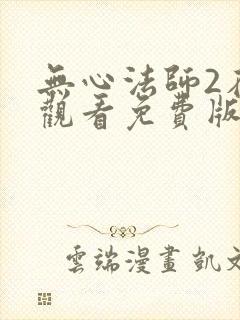 無心法師2
觀看免費版
雲端漫畫 凱